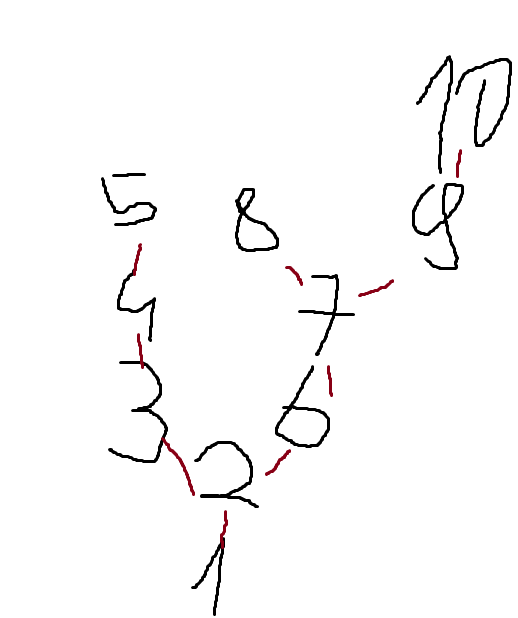 10
5 8 9
4 7
3 6
2
1